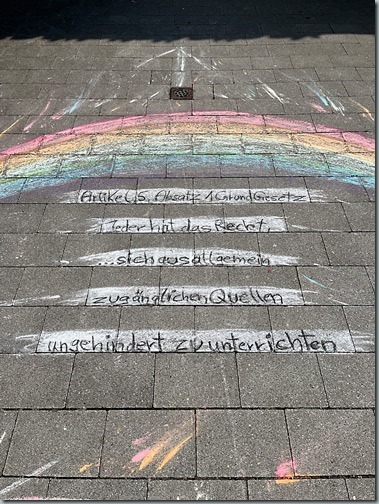 Artikel 5. Absatz 1 GrundGesetz
Jeder hat das Recht,
...sich aus allgemein
zugänglichen Quellen
ungehindert zu unterrichten